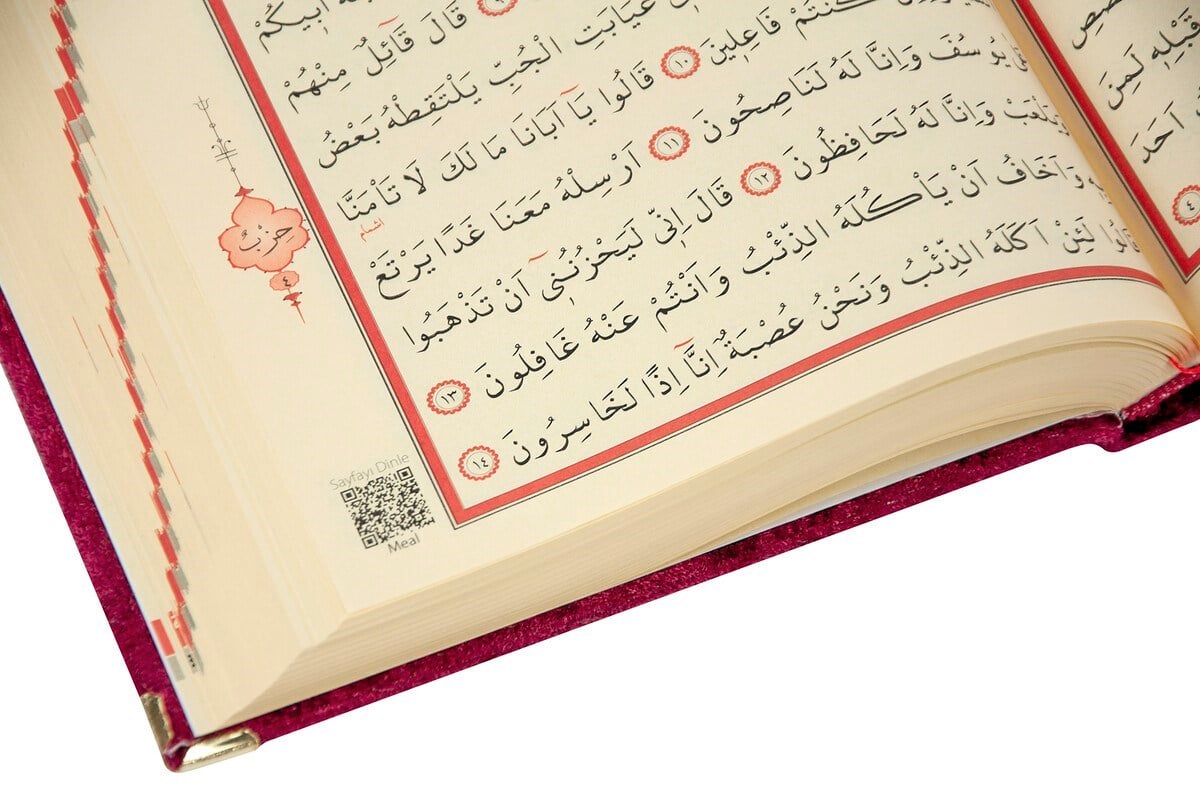 اَبٖيكُمْ
قَالَ قَائِلٌ مِنْهُمْ
غَيَابَتِ الْجُبِّ يَلْتَقِطْهُ بَعْضُ
كُنْتُمْ فَاعِلٖينَ ١٠ قَالُوا يَٓا اَبَانَا مَا لَكَ لَا تَأْمَنَّا
اشمام
يُوسُفَ وَاِنَّا لَهُ لَنَاصِحُونَ ١١ اَرْسِلْهُ مَعَنَا غَدًا يَرْتَعْ
وَيَلْعَبْ وَاِنَّا لَهُ لَحَافِظُونَ ١٢ قَالَ اِنّٖي لَيَحْزُنُنٖٓي اَنْ تَذْهَبُوا
بِهٖ وَاَخَافُ اَنْ يَأْكُلَهُ الذِّئْبُ وَاَنْتُمْ عَنْهُ غَافِلُونَ ١٣
قَالُوا لَئِنْ اَكَلَهُ الذِّئْبُ وَنَحْنُ عُصْبَةٌ اِنَّٓا اِذًا لَخَاسِرُونَ ١٤
حِزْبٌ
٤
Sayfayı Dinle
Meal
قَبْلِهٖ لَمِنَ
اَحَدَ
٤